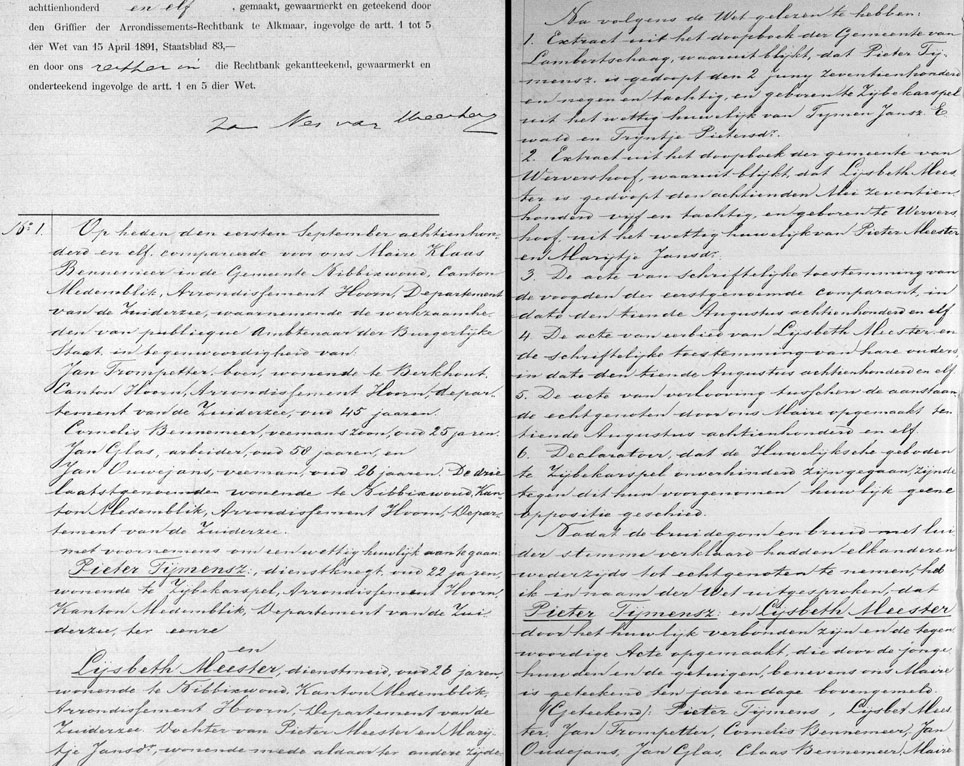 achttienhonderd en elf , gemaakt, gewaarmerkt en geteekend door
den Griffier der Arrondissements-Rechtbank te Alkmaar, ingevolge de artt. 1 tot 5
der Wet van 15 April 1891, Staatsblad 83,—
en door ons rechter in de Rechtbank gekantteekend, gewaarmerkt en
onderteekend ingevolge de artt. 1 en 5 dier Wet.
No. 1. Op heden den eersten September achttienhon-
derd en elf, compareerde voor ons Maire Klaas
Bennemeer in de Gemeente Nibbixwoud, Canton
Medemblik, Arrondissement Hoorn, Departement
van de Zuiderzee, waarnemende de werkzaamhe-
den van publicque Ambtenaar der Burgerlijke
Staat, in tegenwoordigheid van
Jan Trompetter, boer, wonende te Berkhout,
Canton Hoorn, Arrondissement Hoorn, depar-
tement van de Zuiderzee, oud 45 jaaren.
Cornelis Bennemeer, veemans zoon, oud 25 jaren.
Jan Glas, arbeider, oud 50 jaaren, en
Jan Ouwejans, veeman, oud 26 jaaren. De drie
laatstgenoemden wonende te Nibbixwoud, Kan-
ton Medemblik, Arrondissement Hoorn, Depar-
tement van de Zuiderzee.
met voornemens om een wettig huwlijk aan te gaan:
Pieter Tijmensz:, dienstknegt, oud 22 jaren,
wonende te Zijbekarspel, Arrondissement Hoorn,
Kanton Medemblik, Departement van de Zui-
derzee, ter eenre
en
Lijsbeth Meester, dienstmeid, oud 26 jaren,
wonende te Nibbixwoud, Kanton Medemblik,
Arrondissement Hoorn, Departement van de
Zuiderzee. Dochter van Pieter Meester en Marij-
tje Jansdr., wonende mede aldaar ter andere zijde
Na volgens de Wet gelezen te hebben:
1. Extract uit het doopboek der Gemeente van
Lambertschaag, waaruit blijkt, dat Pieter Tij-
mensz. is gedoopt den 2 juny zeventienhonderd
en negen en tachtig, en geboren te Zijbekarspel
uit het wettig huwelijk van Tijmen Jansz. E
wald en Trijntje Pietersdr.
2. Extract uit het doopboek der gemeente van
Wervershoof, waaruit blijkt, dat Lijsbeth Mees
ter is gedoopt den achtienden Mei zeventien
honderd vijf en tachtig, en geboren te Wervers
hoof, uit het wettig huwelijk van Pieter Meester
en Marijtje Jansdr.
3. De acte van schriftelijke toestemming van
de voogden der eerstgenoemde comparant, in
dato den tiende Augustus achtienhonderd en elf
4. De acte van eerbied van Lijsbeth Meester en
de schriftelijke toestemming van hare ouders,
in dato den tiende Augustus achtienhonderd en elf
5. De acte van verlooving tusschen de aanstaan
de echtgenoten door ons Maire opgemaakt ten
tiende Augustus achtienhonderd en elf.
6. Declaratoir, dat de Huwelijksche geboden
te Zijbekarspel onverhinderd zijn gegaan, zijnde
tegen dit hun voorgenomen huwlijk geene
oppositie geschied.
Nadat de bruidegom en bruid met lui
der stemme verklaard hadden elkanderen
wederzijds tot echtgenoten te nemen, heb
ik in naam der Wet uitgesproken, dat
Pieter Tijmensz: en Lijsbeth Meester
door het huwlijk verbonden zijn en de tegen
woordige Acte opgemaakt, die door de jonge
huwden en de getuigen, benevens ons Maire
is geteekend ten jare en dage bovengemeld.
(Geteekend): Pieter Tijmens, Lijsbet Mees
ter, Jan Trompetter, Cornelis Bennemeer, Jan
Oudejans, Jan Glas, Claas Bennemeer, Maire